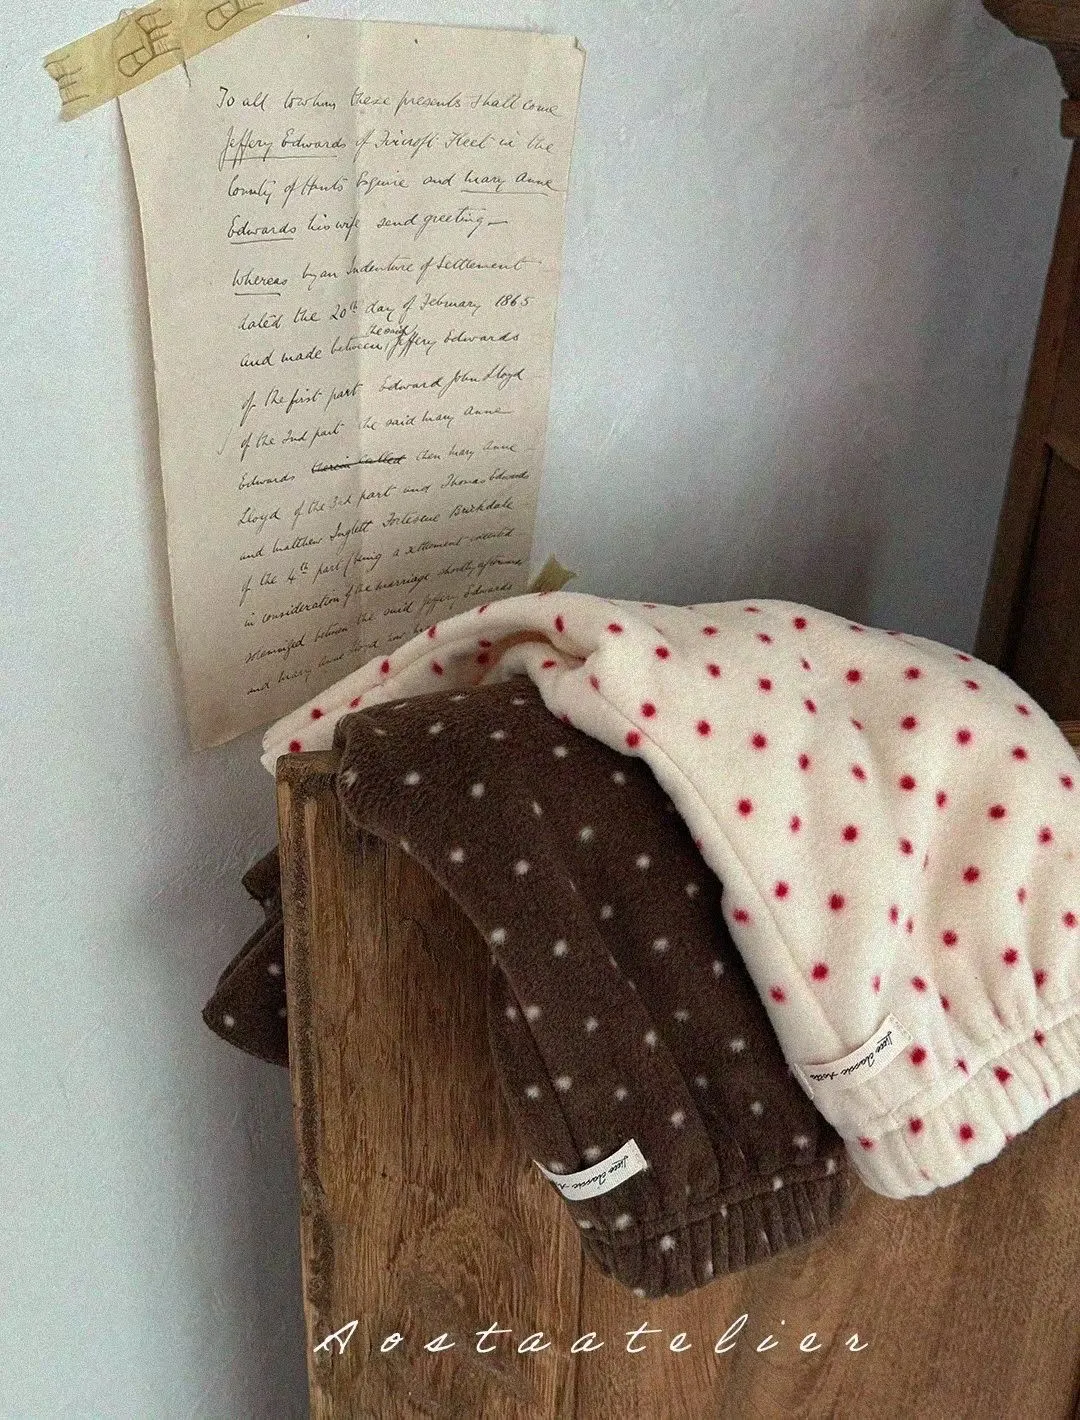 To all to whom these presents shall come
Jeffery Edwards of Fleet in the
County of Hants Esquire and Mary Anne
Edwards his wife send greeting
Whereas by an Indenture of Settlement
dated the 20th day of February 1865
the said
and made between Jeffery Edwards
of the first part Edward John Lloyd
of the 2nd part the said Mary Anne
Edwards therein called then Mary Anne
Lloyd of the 3rd part and Thomas Edwards
and Matthew Inglett Fortescue Brickdale
of the 4th part (being a settlement executed
in consideration of the marriage shortly afterwards
solemnized between the said Jeffery Edwards
and Mary Anne Lloyd now
classic
classic
Aostaatelier